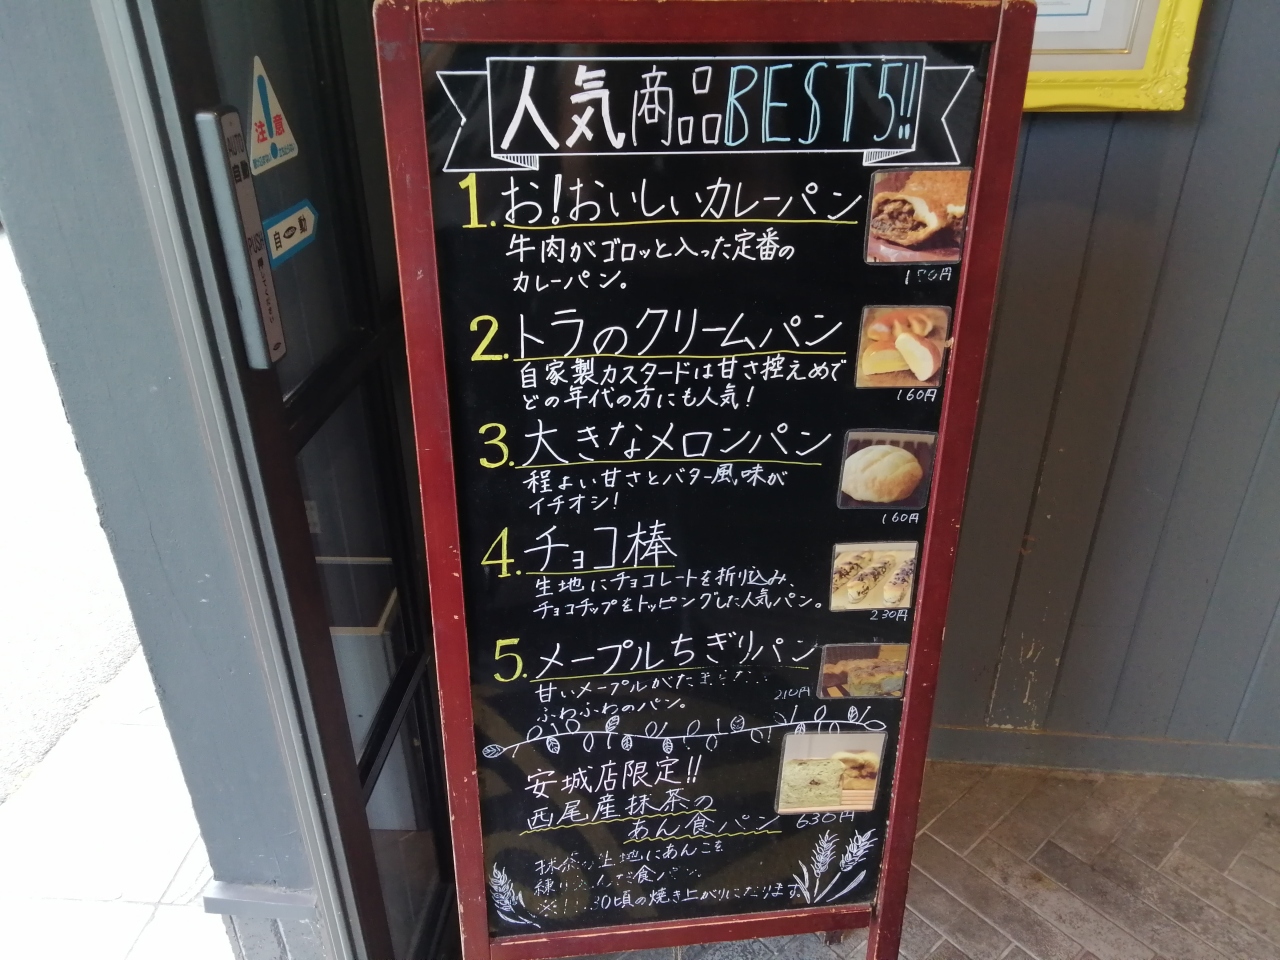 人気商品BEST5!!
1.お!おいしいカレーパン
牛肉がゴロッと入った定番の
カレーパン。
円
2.トラのクリームパン
自家製カスタードは甘さ控えめで
どの年代の方にも人気!
160円
3.大きなメロンパン
程よい甘さとバター風味が
イチオシ!
160円
4.チョコ棒
生地にチョコレートを折り込み、
チョコチップをトッピングした人気パン。
230円
5.メープルちぎりパン
甘いメープルがた
210円
ふわふわのパン。
安城店限定!!
西尾産抹茶の
あん食パン
630円
抹茶 生地にあんこを
練り 食パン
頃の焼き上がりになります
注意
自動
AUTO
自動
PUSH
押してください